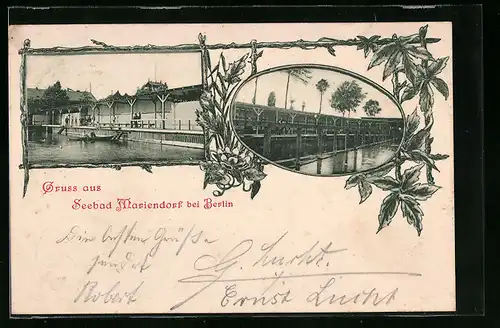 Gruss aus
Seebad Mariendorf bei Berlin
Die besten Grüße
sendet
Robert
G. Lucht.
Ernst Lucht